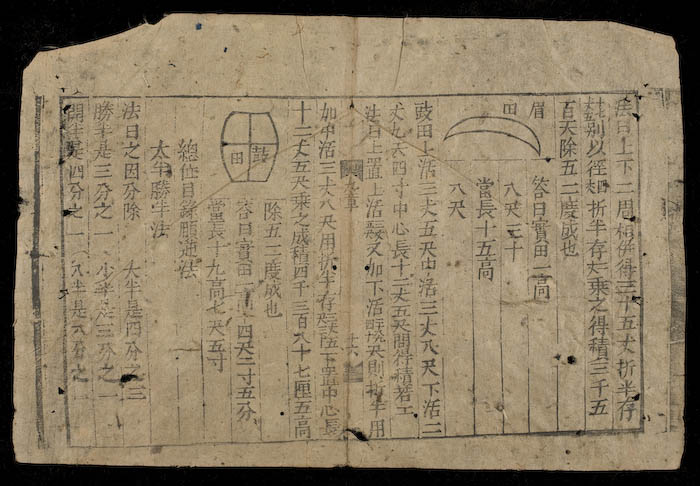 法曰上下二周相併得三十五丈折半存
別以徑折半存乘之得積三千五
百尺除五二度成也
眉田
答曰實田二高
八尺三十
當長十五高
八尺
鼓田上活三丈五尺中活三丈八尺下活二
丈九尺四寸中心長十二丈五尺問得積若工
法曰上置上活又加下活尺則折半用
加中活三丈八尺用折半存下置中心長
十二丈五尺乘之成積四千三百八十七厘五高
鼓田
除五二度成也
答曰實田一高四尺二寸五分
當長十九高七尺五寸
總仕目錄順逆法
太半勝半法
法曰之因分除 太半是四分之三
勝半是三分之一 少半是三分之一
半是四分之一 半是六分之一